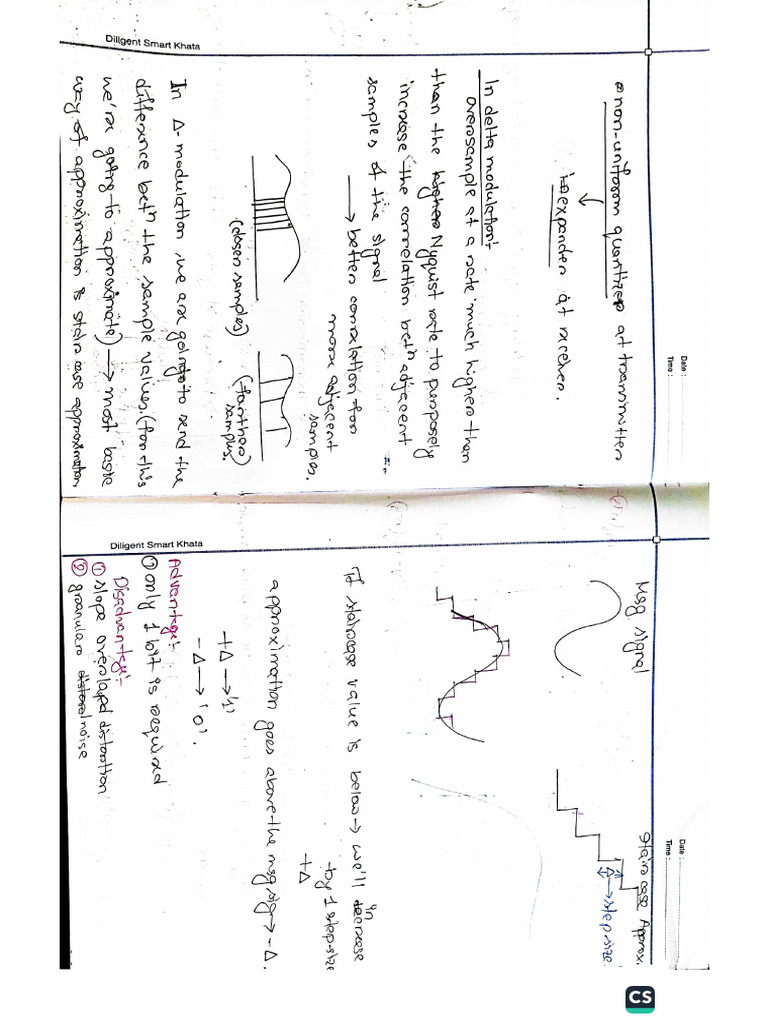 Date :
Time :
⊙ non-uniform quantizer at transmitter
↓
expander at receiver.
In delta modulation:
oversample at a rate much higher than
than the Nyquist rate to purposely
increase the correlation betⁿ adjacent
samples of the signal
→ better correlation for
more adjecent
samples.
(closer samples)
(farther)
samples.
In Δ-modulation, we are going to send the
difference betⁿ the sample values. (for this
we're going to approximate) → most basic
way of approximation is stair case approximation
Diligent Smart Khata
Date :
Time :
Msg signal
Stair case Approx.
Δ → step-size
If staircase value is below → we'll increase
by 1 step-size
+Δ
approximation goes above the msg sig → -Δ.
+Δ → '1'
-Δ → '0'.
Advantage:-
① only 1 bit is required
Disadvantage:-
① slope overload distortion
② granular noise
Diligent Smart Khata
CS